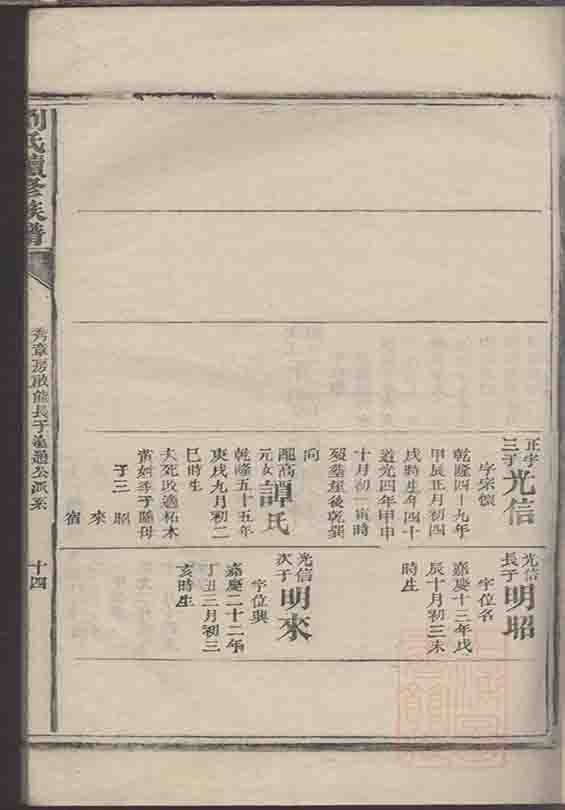 正宇
三子
光信
字宗懷
乾隆四十九年
甲辰正月初四
戌時生年四十
道光四年甲申
十月初一寅時
歿墓崖後乾巽
向
配高
元女
譚氏
乾隆五十五年
庚戌九月初二
巳時生
夫死改適柘木
當姓季子隨母
子三
昭
來
宿
光信
長子
明昭
字位名
嘉慶十三年戊
辰十月初三未
時生
光信
次子
明來
字位與
嘉慶二十二年
丁丑三月初三
亥時生
劉氏續修族譜
秀章房啟能長子
通公派系
十四